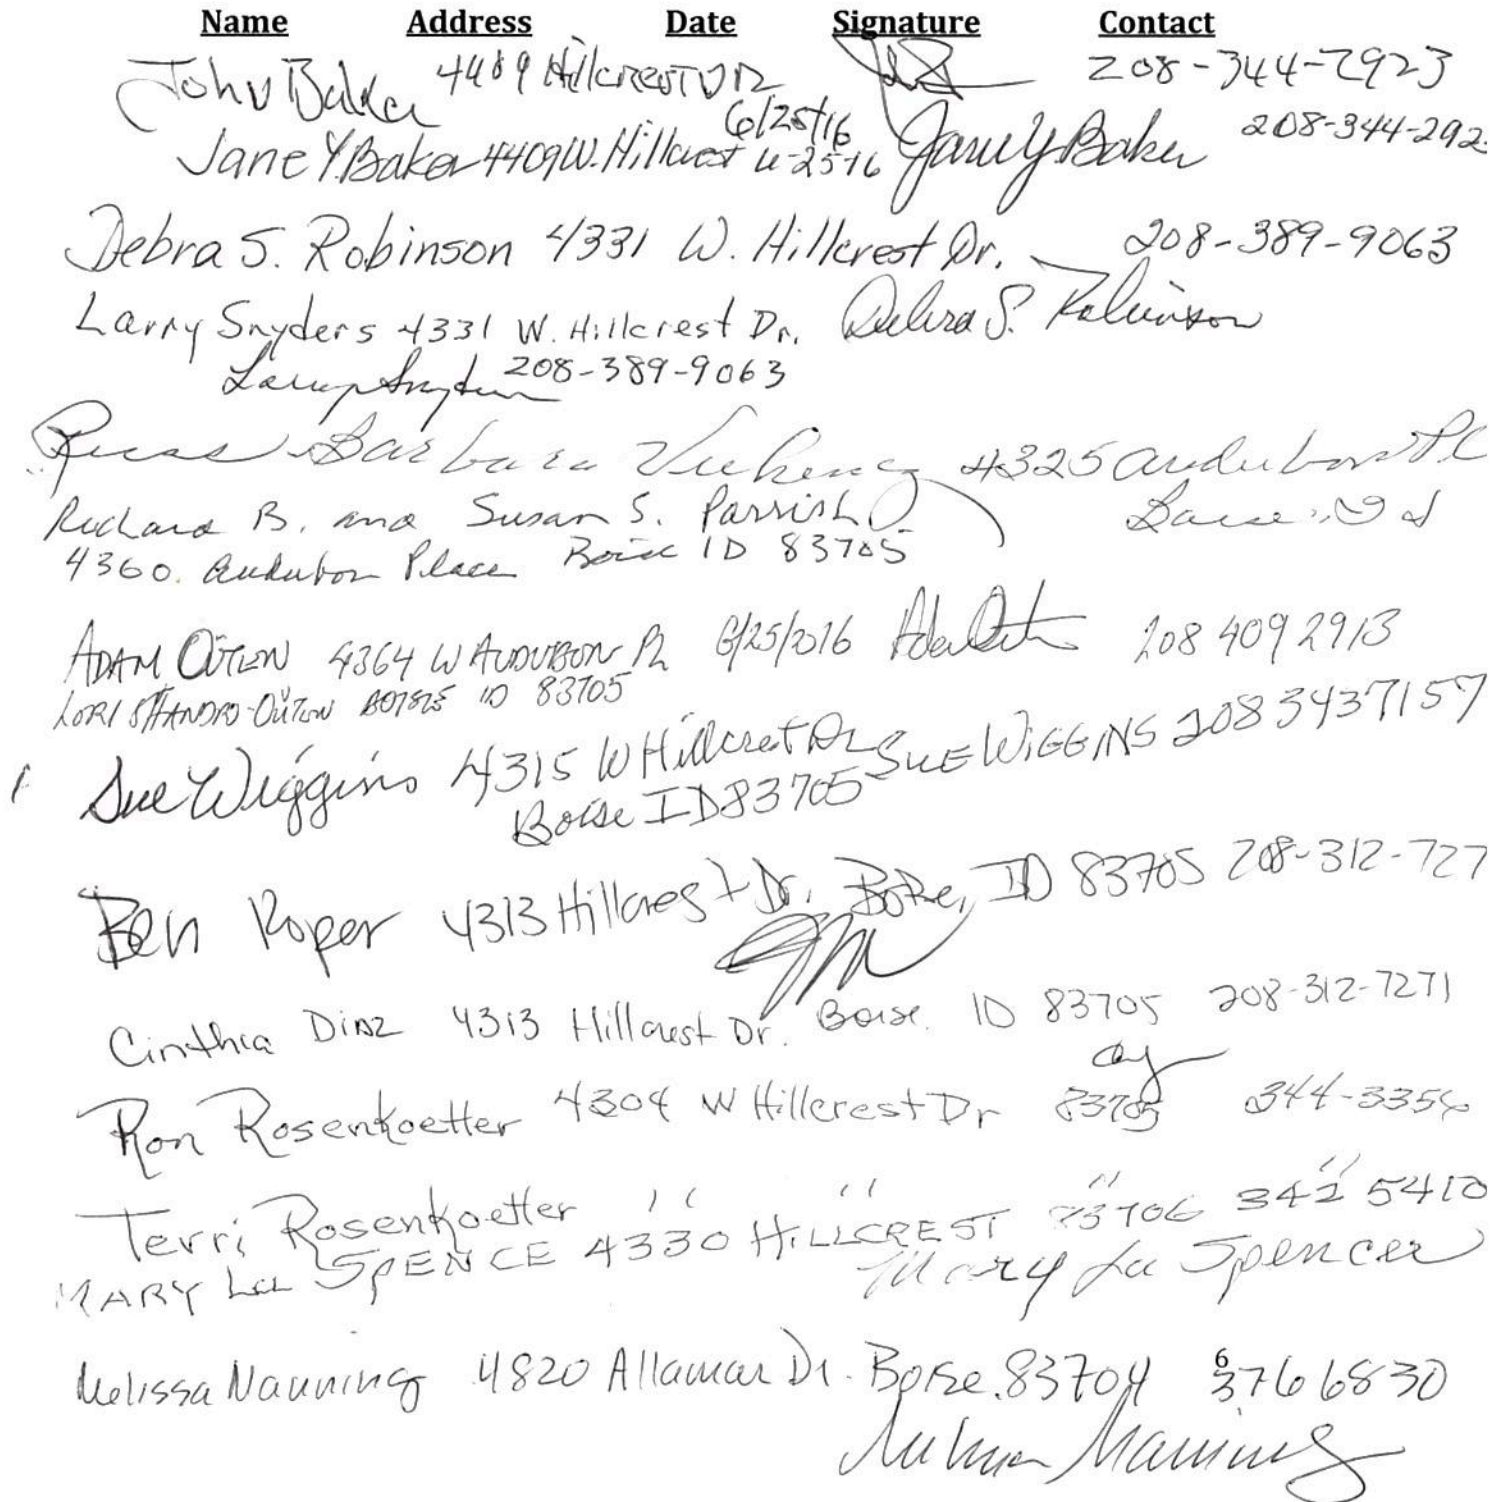 Name Address Date Signature Contact
John Baker 4409 Hillcrest DR 208-344-2923
6/25/16
Jane Y. Baker 4409 W. Hillcrest 6-25-16 Jane Y Baker 208-344-292
Debra S. Robinson 4331 W. Hillcrest Dr. 208-389-9063
Larry Snyders 4331 W. Hillcrest Dr. Debra S. Robinson
Larry Snyders 208-389-9063
Barbara 4325 Audubon Pl
Richard B. and Susan S. Parrish Boise, Id
4360 Audubon Place Boise ID 83705
ADAM OUTEN 4364 W AUDUBON PL 6/25/2016 208 409 2913
LORI SHANDRO-OUTEN BOISE ID 83705
Sue Wiggins 4315 W Hillcrest Dr SUE WIGGINS 208 3437157
Boise ID 83705
Ben Roper 4313 Hillcrest Dr. Boise, ID 83705 208-312-727
Cinthia Diaz 4313 Hillcrest Dr. Boise ID 83705 208-312-7271
Ron Rosenkoetter 4304 W Hillcrest Dr 83705 344-3356
Terri Rosenkoetter " " " "
MARY LU SPENCE 4330 HILLCREST 83706 342 5410
Mary Lu Spencer
Melissa Manning 4820 Allamar Dr. Boise. 83704 3766830
6
Melissa Manning